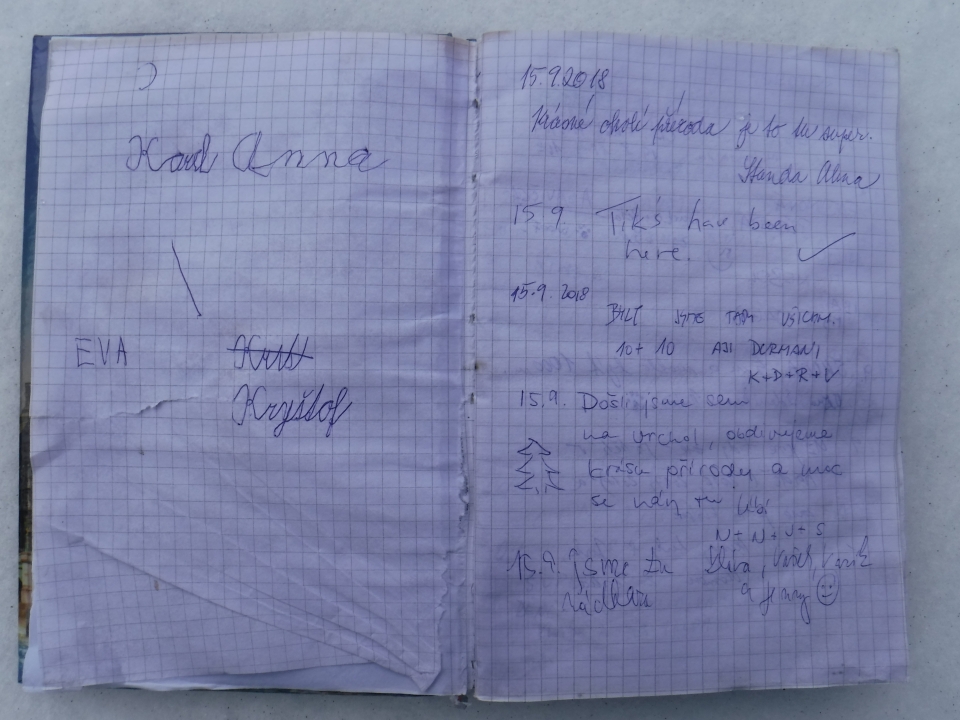 Karel Anna
EVA
Kryštof
15.9.2018
Krásné okolí příroda je to tu super.
Standa Alena
15.9. Tik's have been
here.
15.9. 2018
BYLI JSME TADY VŠICHNI.
10+10 AJI DORMANI
K+D+R+V
15.9. Došli jsme sem
na vrchol, obdivujeme
krásu přírody a moc
se nám tu líbí
N+N+J+S
15.9. jsme tu
a